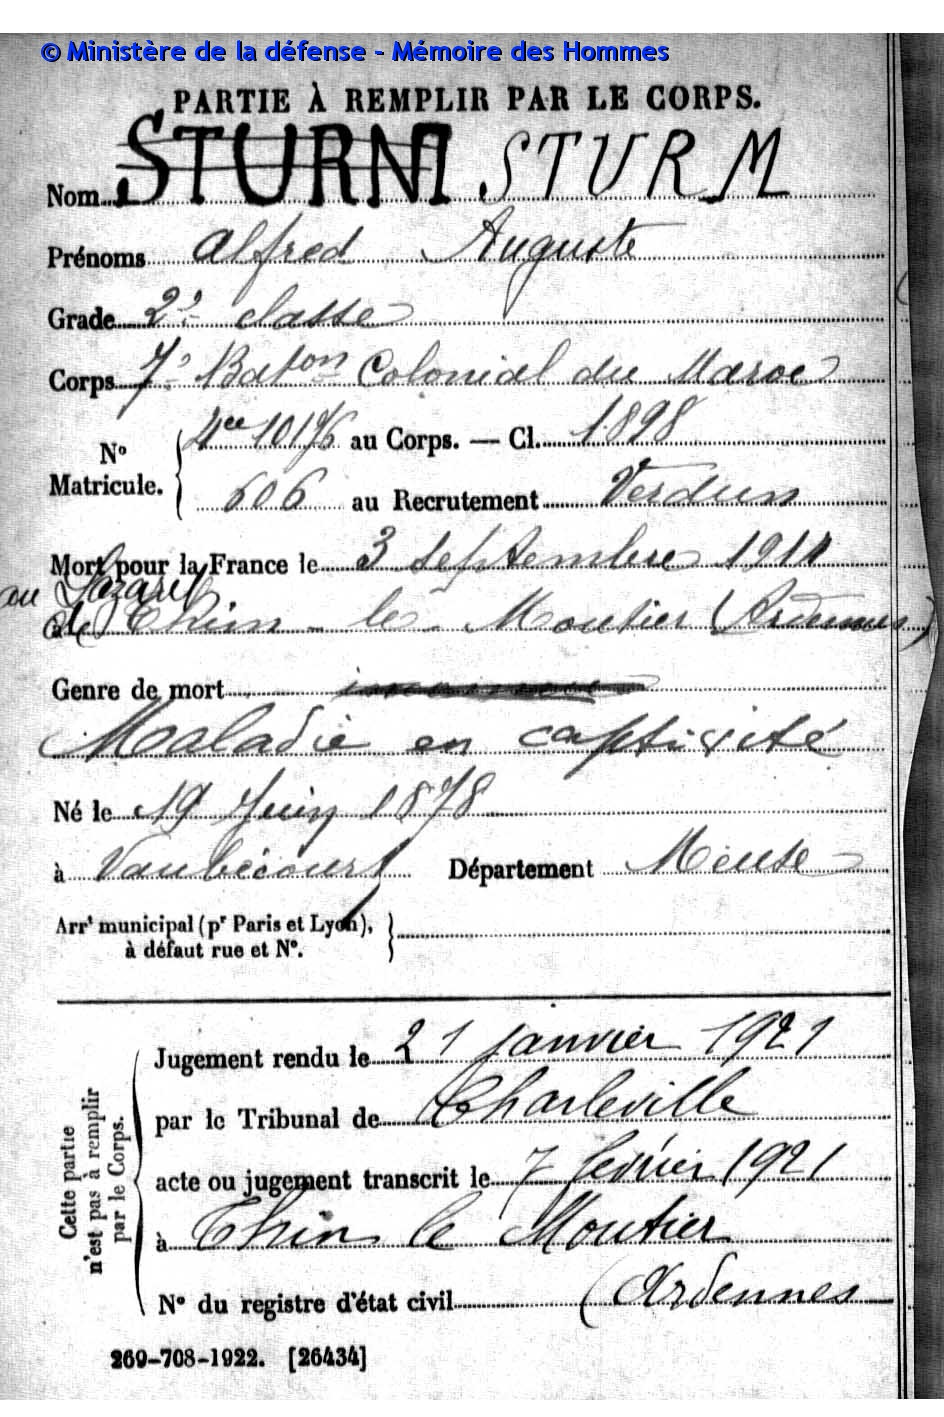 © Ministère de la défense - Mémoire des Hommes
PARTIE À REMPLIR PAR LE CORPS.
Nom STURM
Prénoms Alfred Auguste
Grade 2e classe
Corps 7e Baton Colonial du Maroc
No Matricule. 4ee 10176 au Corps. — Cl. 1898
606 au Recrutement Verdun
Mort pour la France le 3 septembre 1914
au Lazaret
de Thin-le-Moutier (Ardennes)
Genre de mort
Maladie en captivité
Né le 19 Juin 1878
à Vaubécourt Département Meuse
Arrt municipal (pr Paris et Lyon),
à défaut rue et No.
Cette partie
n'est pas à remplir
par le Corps.
Jugement rendu le 21 janvier 1921
par le Tribunal de Charleville
acte ou jugement transcrit le 7 février 1921
à Thin le Moutier
No du registre d'état civil (Ardennes
269-708-1922. [26434]